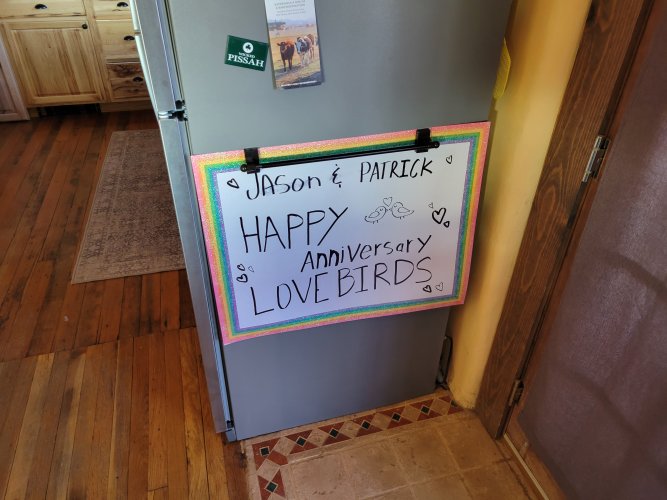 WICKED
PISSAH
JASon & PATRICK
HAPPY
AnniVersary
LOVE BIRDS